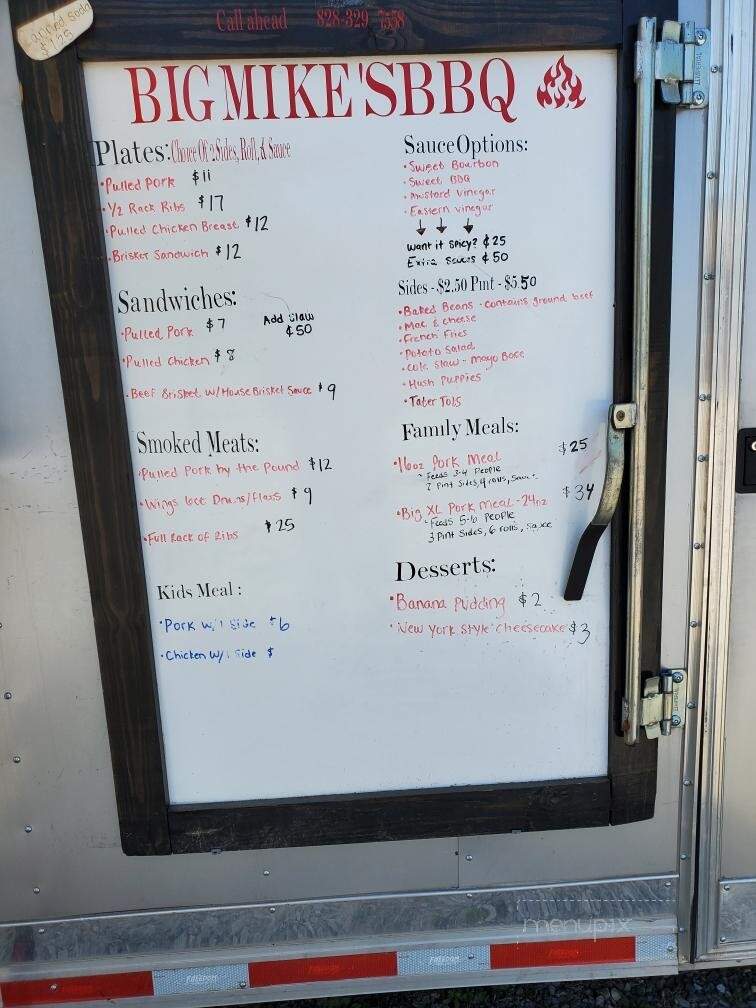 canned soda
$1.25
Call ahead 828-329-7558
BIG MIKE'S BBQ
Plates: Choice Of 2 Sides, Roll, & Sauce
• Pulled Pork $11
• 1/2 Rack Ribs $17
• Pulled Chicken Breast $12
• Brisket Sandwich $12
Sandwiches:
• Pulled Pork $7
Add Slaw
$50
• Pulled Chicken $8
• Beef Brisket w/House Brisket Sauce $9
Smoked Meats:
• Pulled Pork by the Pound $12
• Wings 6ct Drums/flats $9
• Full Rack of Ribs $25
Kids Meal:
• Pork w/1 Side $6
• Chicken w/1 Side $
Sauce Options:
• Sweet Bourbon
• Sweet BBQ
• Mustard Vinegar
• Eastern Vinegar
↓ ↓ ↓
Want it Spicy? ¢25
Extra Sauces ¢50
Sides - $2.50 Pint - $5.50
• Baked Beans - contains ground beef
• Mac & cheese
• French Fries
• Potato Salad
• Cole Slaw - mayo Base
• Hush Puppies
• Tater Tots
Family Meals:
• 16oz Pork Meal $25
• Feeds 3-4 People
2 Pint Sides, 4 rolls, Sauce
• Big XL Pork meal - 24oz $34
• Feeds 5-6 People
3 Pint Sides, 6 rolls, Sauce
Desserts:
• Banana Pudding $2
• New York Style Cheesecake $3
menupix